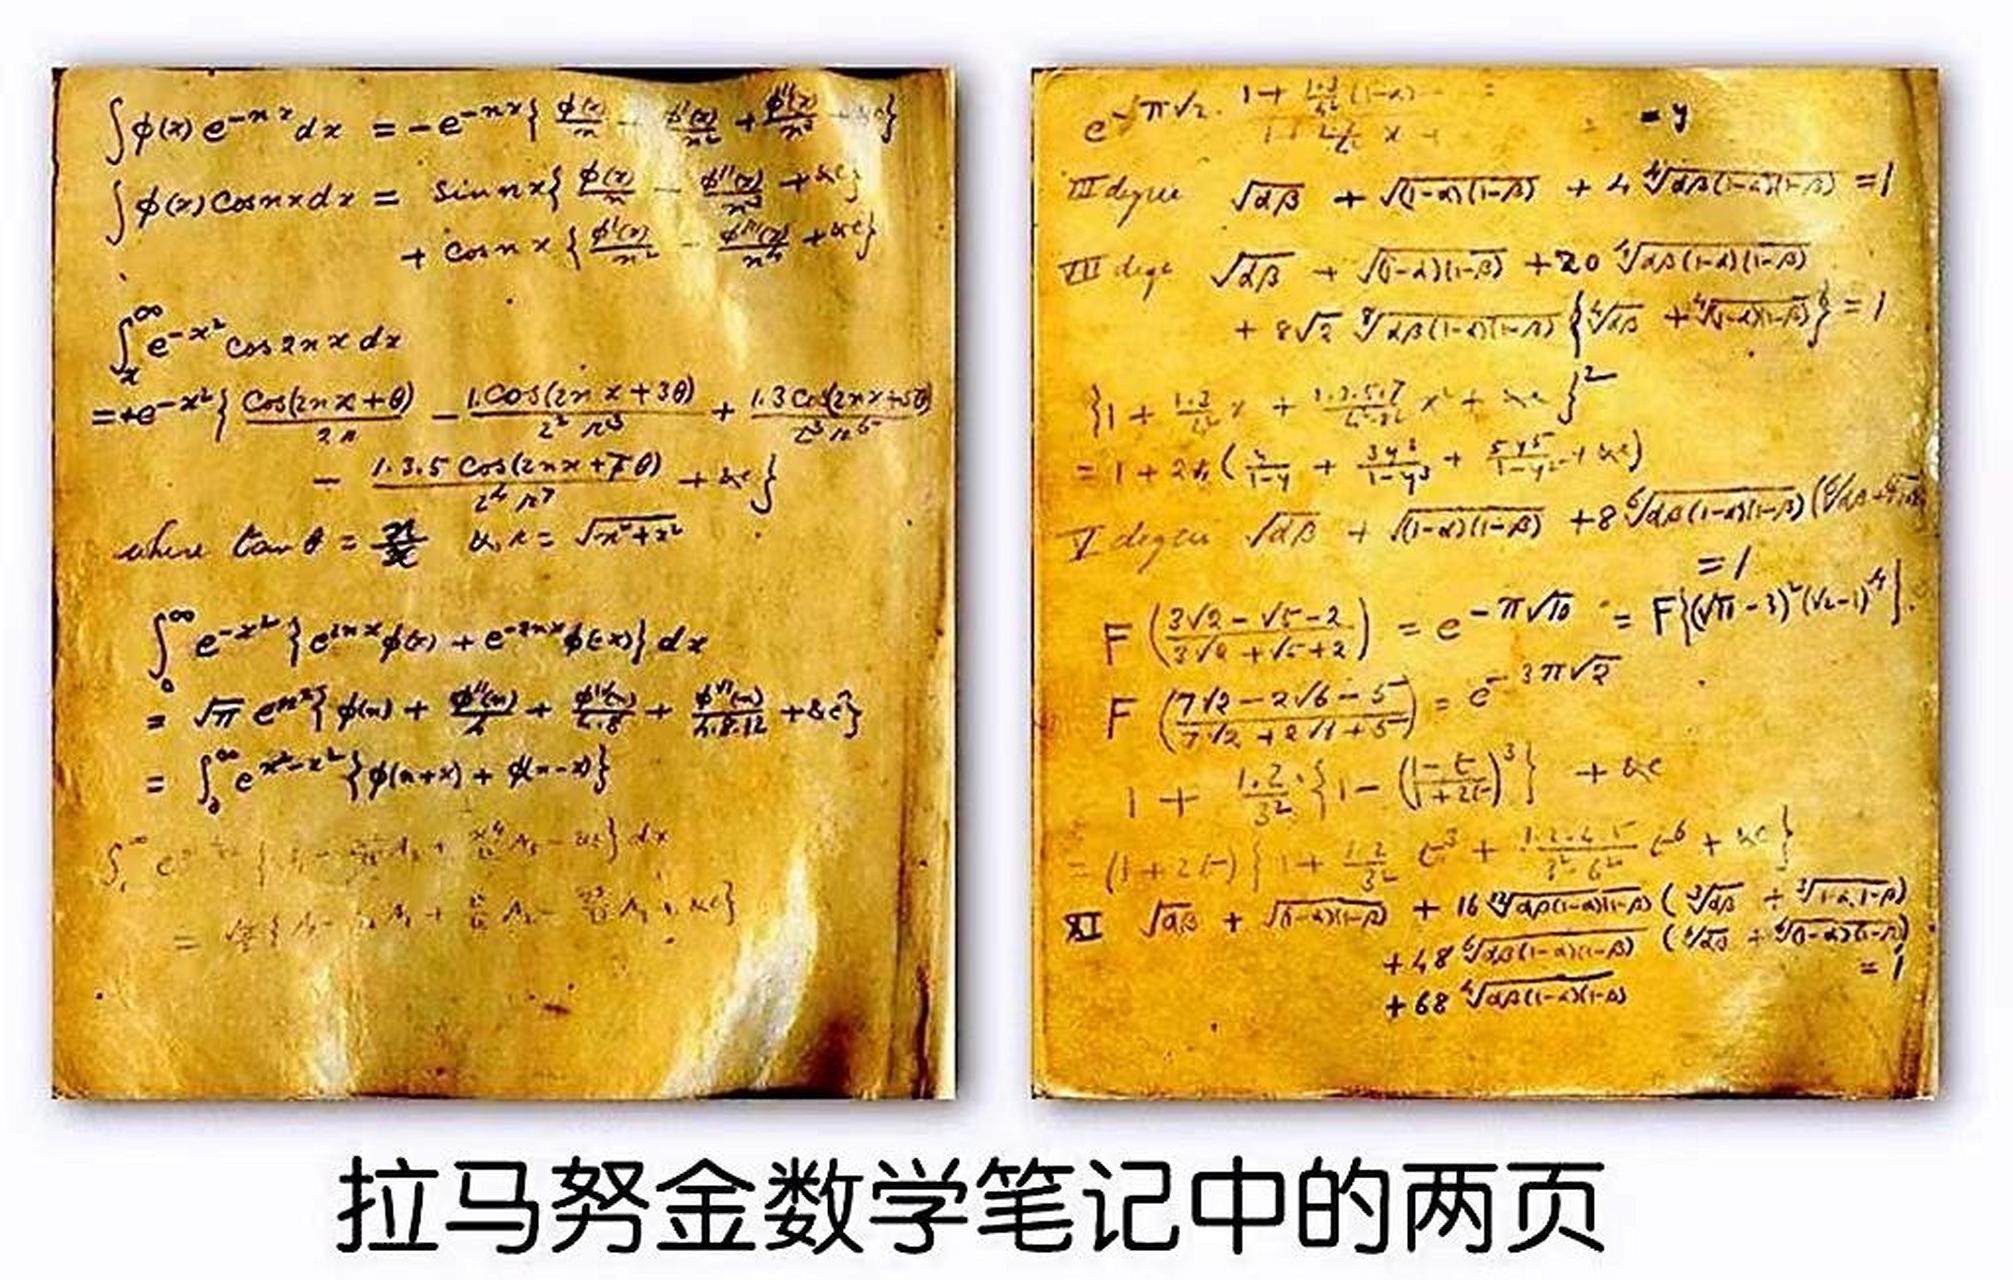 ∫φ(x) e^{-nx} dx = -e^{-nx}{ φ(x)/n + φ'(x)/n² + φ''(x)/n³ + &c}
∫φ(x) Cos nx dx = Sin nx{ φ(x)/n - φ''(x)/n³ + &c}
+ Cos nx { φ'(x)/n² - φ'''(x)/n⁴ + &c}
∫_x^∞ e^{-x²} Cos 2nx dx
= e^{-x²}{ Cos(2nx+θ)/2r - 1.Cos(2nx+3θ)/2² r³ + 1.3 Cos(2nx+5θ)/2³ r⁵
- 1.3.5 Cos(2nx+7θ)/2⁴ r⁷ + &c}
where tan θ = n/x & r = √(n²+x²)
∫_0^∞ e^{-x²} {e^{2nx} φ(x) + e^{-2nx} φ(-x)} dx
= √π e^{n²}{ φ(n) + φ''(n)/4 + φ^{IV}(n)/4.8 + φ^{VI}(n)/4.8.12 + &c}
= ∫_0^∞ e^{n²-x²} {φ(n+x) + φ(n-x)}
= y
III degree √αβ + √(1-α)(1-β) + 4 ∜αβ(1-α)(1-β) = 1
VII degr √αβ + √(1-α)(1-β) + 20 ∜αβ(1-α)(1-β)
+ 8√2 ⁸√αβ(1-α)(1-β) {∜αβ + ∜(1-α)(1-β)} = 1
{1 + x + 1.3.5.7 x² + &c}²
= 1 + 24( y/1-y + 3y³/1-y³ + 5y⁵/ + &c)
V degree √αβ + √(1-α)(1-β) + 8 ⁶√αβ(1-α)(1-β) (⁶√αβ +
= 1
F (3√2 - √5 - 2 / 3√2 + √5 + 2) = e^{-π√10} = F{(√10 - 3)²(√2-1)⁴}.
F (7√2 - 2√6 - 5 / 7√2 + 2√6 + 5) = e^{-3π√2}
1 + 1.2/3² {1 - (1-t/1+2t)³} + &c
= (1+2t) {1 + 1.2/3² t³ + 1.2.4.5/3² 6² t⁶ + &c}
XI √αβ + √(1-α)(1-β) + 16 ¹²√αβ(1-α)(1-β) ( ³√αβ + ³√(1-α)(1-β))
+ 48 ⁶√αβ(1-α)(1-β) (⁶√αβ + ⁶√(1-α)(1-β))
= 1
+ 68 ∜αβ(1-α)(1-β)
拉马努金数学笔记中的两页